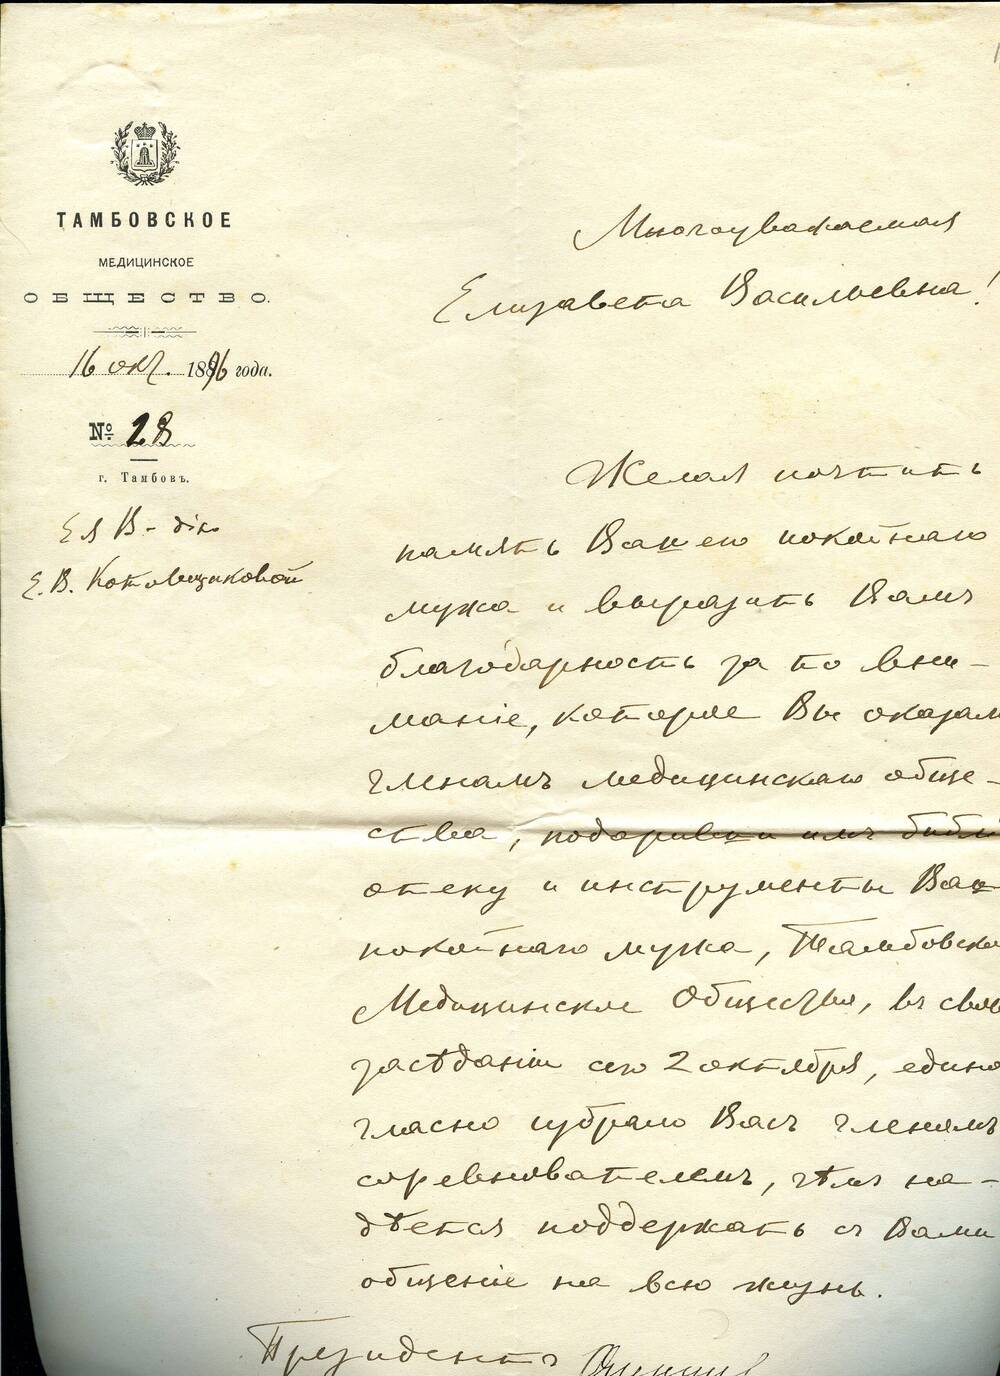 ТАМБОВСКОЕ
МЕДИЦИНСКОЕ
ОБЩЕСТВО.
16 окт. 1896 года.
№ 28
г. Тамбовъ.
Ея В-дію
Е. В. Котовщиковой
Многоуважаемая
Елизавета Васильевна!
Желая почтить
память Вашего покойнаго
мужа и выразить Вамъ
благодарность за то вни-
маніе, которое Вы оказал
членамъ медицинскаго обще-
ства, подаривши имъ библі
отеку и инструменты Ваш
покойнаго мужа, Тамбовско
Медицинское Общество, въ свое
засѣданіи сего 2 октября, едино
гласно избрало Васъ членомъ
соревнователемъ, чѣмъ на-
дѣется поддержать съ Вами
общеніе на всю жизнь.
Президентъ